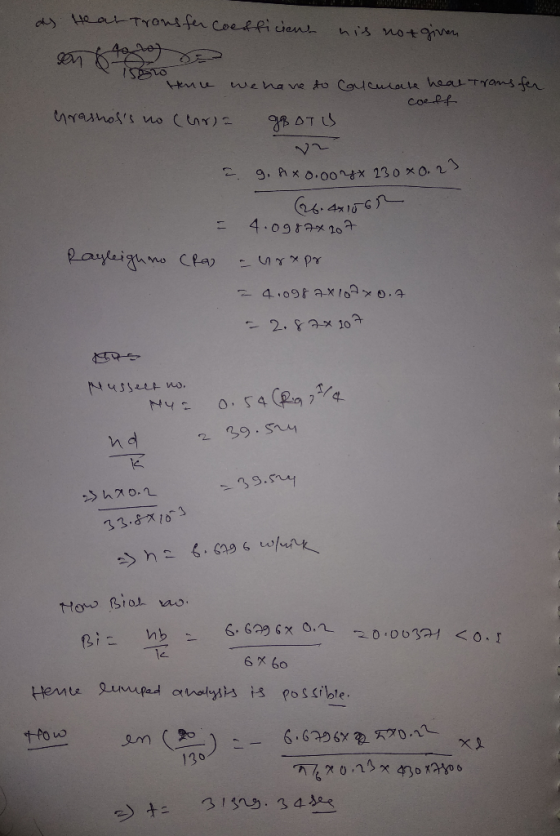 a) Heat Transfer Coefficient h is not given
Hence we have to Calculate heat Transfer
coeff
Grashof's no (Gr) = gβΔTL³
ν²
= 9.81 × 0.0028 × 230 × 0.2³
(26.4×10⁻⁶)²
= 4.0987×10⁷
Rayleigh no (Ra) = Gr × pr
= 4.0987×10⁷×0.7
= 2.87×10⁷
Nusselt no.
Nu = 0.54 (Ra)^1/4
hd
k
= 39.524
⇒ h×0.2
33.8×10⁻³
= 39.524
⇒ h = 6.6796 w/m²k
Now Biot no.
Bi = hb
k
= 6.6796× 0.2
6×60
= 0.00371 < 0.1
Hence lumped analysis is possible.
Now
ln (20
130) = - 6.6796× π×0.2²
π/6 × 0.2³ × 430×7800
⇒ t = 31329.34 sec